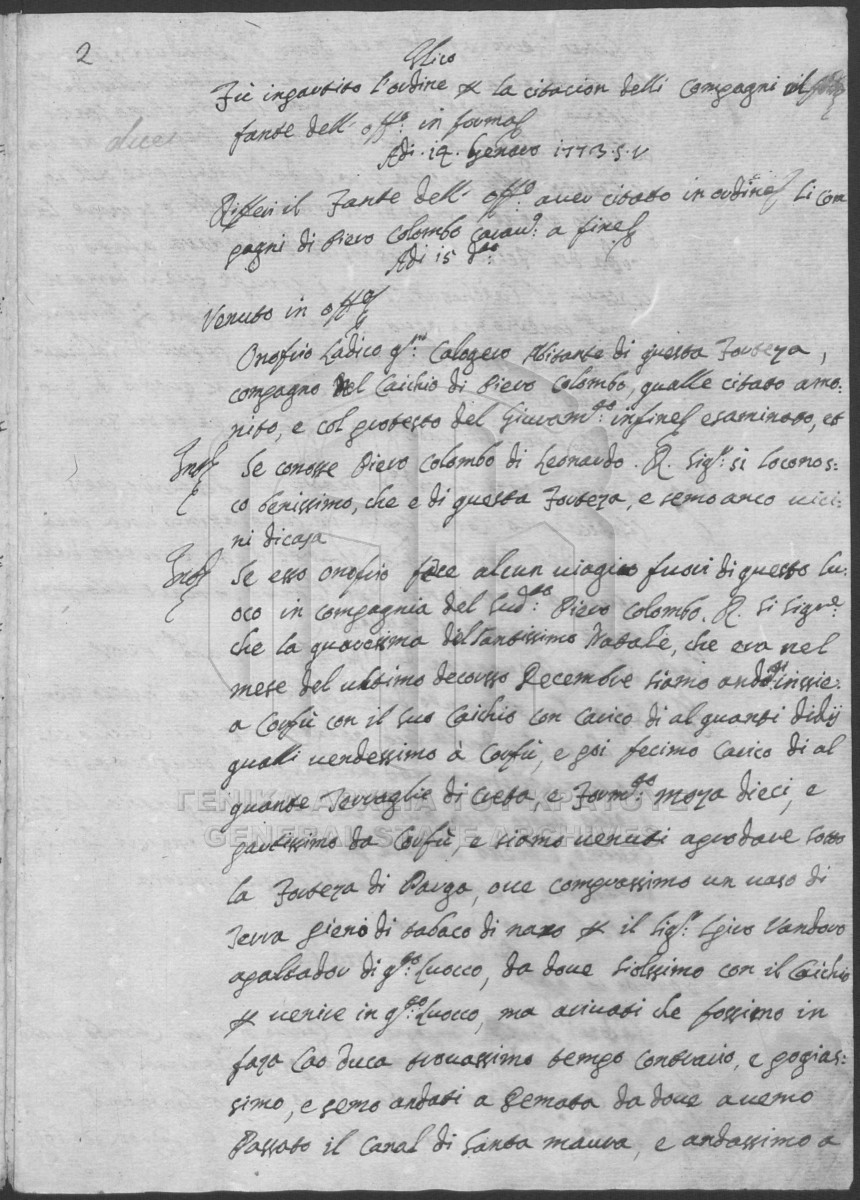 2
Fù impartito l'ordine per la citacion delli Compagni al
fante dell' offo: in forma
Adi. 14. Genaro 1773. S. V
Rifferì il Fante dell' offo: aver citato in ordine li Com
pagni di Piero Colombo Carauo: a fine
Adi 15 do:
Venuto in offo
Onofrio Ladico qm: Calogero Abitante di questa Forteza,
compagno del Caichio di Piero Colombo, qualle citato amo:
nito, e col protesto del Giuramto: infine esaminato, et
Into Se conosse Piero Colombo di Leonardo. R. Sigr: si loconos:
co benissimo, che e di questa Forteza, e semo anco uici:
ni di casa
Into Se esso Onofrio fece alcun uiagio fuori di questo Lu:
oco in compagnia del Sudto: Piero Colombo. R. Si Signr:
che la quaresima del Santissimo Natale, che era nel
mese del ultimo decorso Decembre siamo andati inssie:
a Corfù con il suo Caichio con carico di al quanti
qualli uendessimo à Corfù, e poi fecimo carico di al
quante Terraglie di Creta, e Formto: moza dieci, e
partissimo da Corfù, e siamo uenuti aprodare sotto
la Forteza di Parga, oue comprassimo un uaso di
Terra pieno di tabaco di naxo per il Sigr: Spiro Vandoro
apaltador di qto: Luocco, da doue siolssimo con il Caichio
per uenire in qto: Luocco, ma ariuati che fossimo in
faza Cao duca trouassimo tempo contrario, e pogias:
simo, e semo andati a Demata da doue auemo
Passato il Canal di Santa maura, e andassimo a
ΓΕΝΙΚΑ ΑΡΧΕΙΑ ΤΟΥ ΚΡΑΤΟΥΣ
GENERAL STATE ARCHIVES